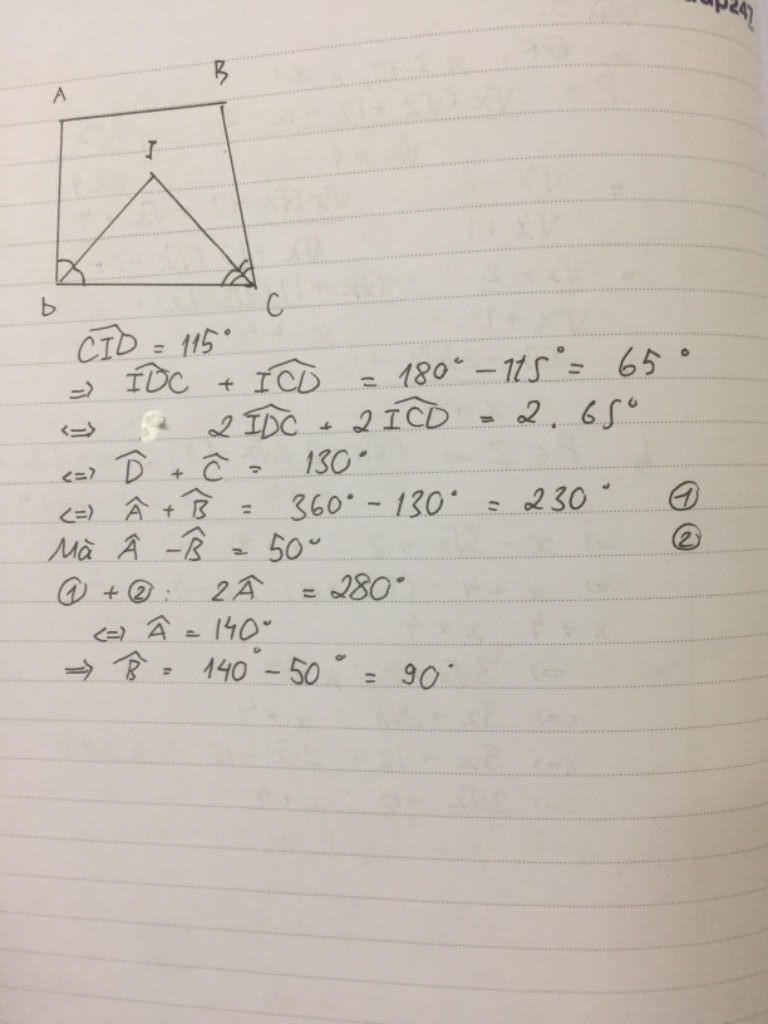 B
A
I
D
C
CID̂ = 115°
=> IDĈ + ICD̂ = 180° - 115° = 65°
<=> 2 IDĈ + 2 ICD̂ = 2 . 65°
<=> D̂ + Ĉ = 130°
<=> Â + B̂ = 360° - 130° = 230° ①
Mà Â - B̂ = 50° ②
① + ② : 2Â = 280°
<=> Â = 140°
=> B̂ = 140° - 50° = 90°